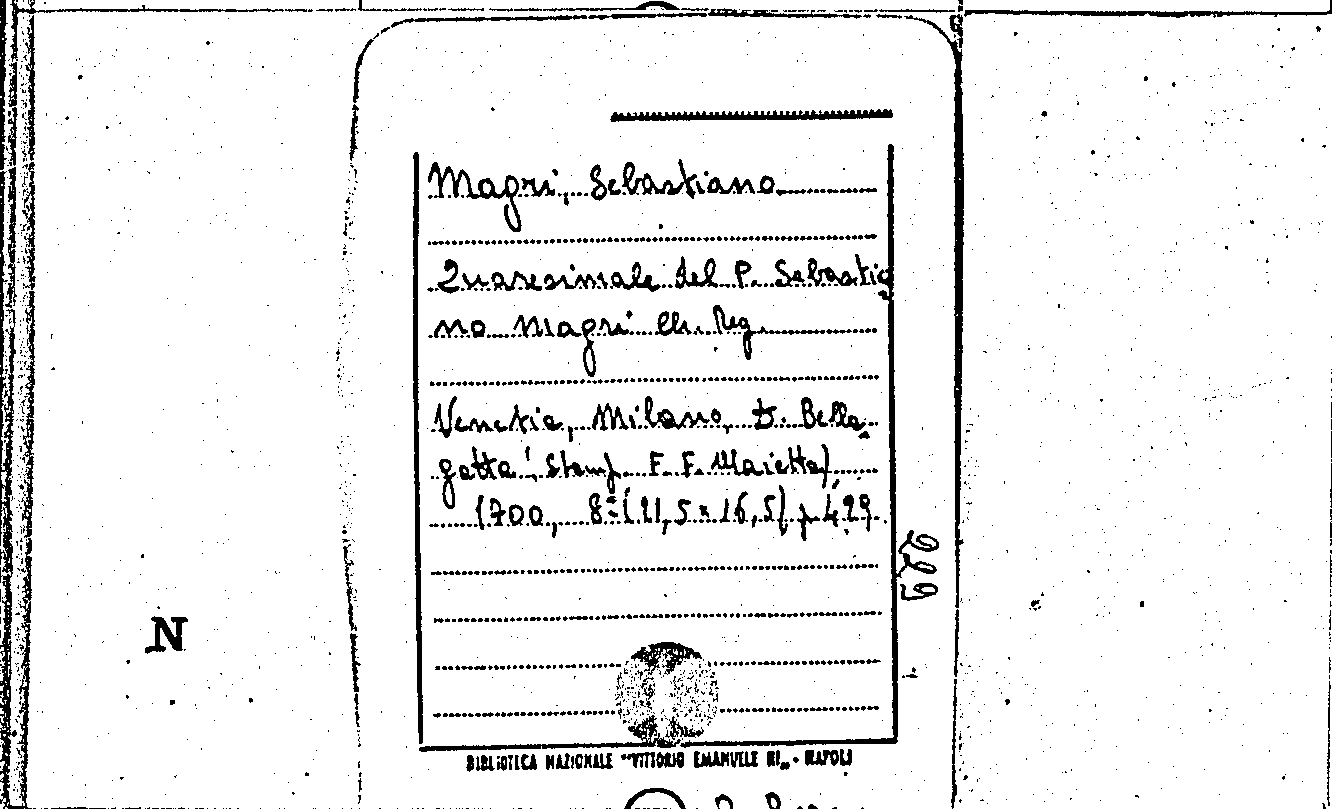 Magri, Sebastiano
Quaresimale del P. Sebastia
no Magri Ch. Reg.
Venetia, Milano, D. Bella
gatta (Stamp. F. F. Maietta),
1700, 8° (21,5 x 16,5), p. 429
N
BIBLIOTECA NAZIONALE "VITTORIO EMANUELE III" - NAPOLI